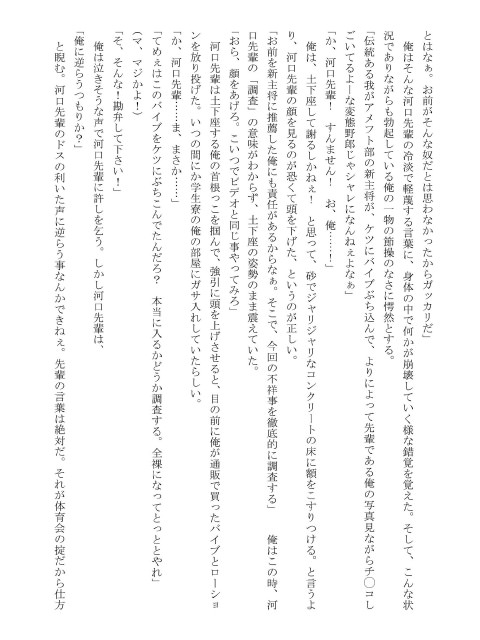 とはなぁ。お前がそんな奴だとは思わなかったからガッカリだ」
　俺はそんな河口先輩の冷淡で軽蔑する言葉に、身体の中で何かが崩壊していく様な錯覚を覚えた。そして、こんな状
況でありながらも勃起している俺の一物の節操のなさに愕然とする。
「伝統ある我がアメフト部の新主将が、ケツにバイブぶち込んで、よりによって先輩である俺の写真見ながらチ〇コし
ごいてるよーな変態野郎じゃシャレになんねぇよなぁ」
「か、河口先輩！　すんません！　お、俺……！」
　俺は、土下座して謝るしかねぇ！　と思って、砂でジャリジャリなコンクリートの床に額をこすりつける。と言うよ
り、河口先輩の顔を見るのが恐くて頭を下げた、というのが正しい。
「お前を新主将に推薦した俺にも責任があるからなぁ。そこで、今回の不祥事を徹底的に調査する」　　俺はこの時、河
口先輩の「調査」の意味がわからず、土下座の姿勢のまま震えていた。
「おら、顔をあげろ。こいつでビデオと同じ事やってみろ」
　河口先輩は土下座する俺の首根っこを掴んで、強引に頭を上げさせると、目の前に俺が通販で買ったバイブとローショ
ンを放り投げた。いつの間にか学生寮の俺の部屋にガサ入れしていたらしい。
「か、河口先輩……ま、まさか……」
「てめぇはこのバイブをケツにぶちこんでたんだろ？　本当に入るかどうか調査する。全裸になってとっととやれ」
（マ、マジかよ！）
「そ、そんな！勘弁して下さい！」
　俺は泣きそうな声で河口先輩に許しを乞う。しかし河口先輩は、
「俺に逆らうつもりか？」
　と睨む。河口先輩のドスの利いた声に逆らう事なんかできねぇ。先輩の言葉は絶対だ。それが体育会の掟だから仕方